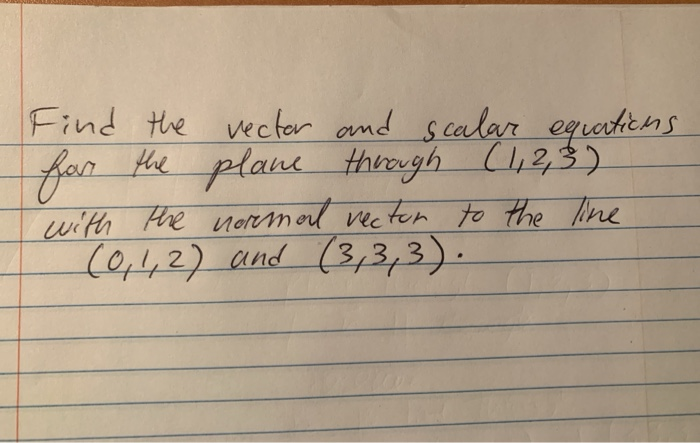 Find the vector and scalar equations
for the plane through (1,2,3)
with the normal vector to the line
(0,1,2) and (3,3,3).